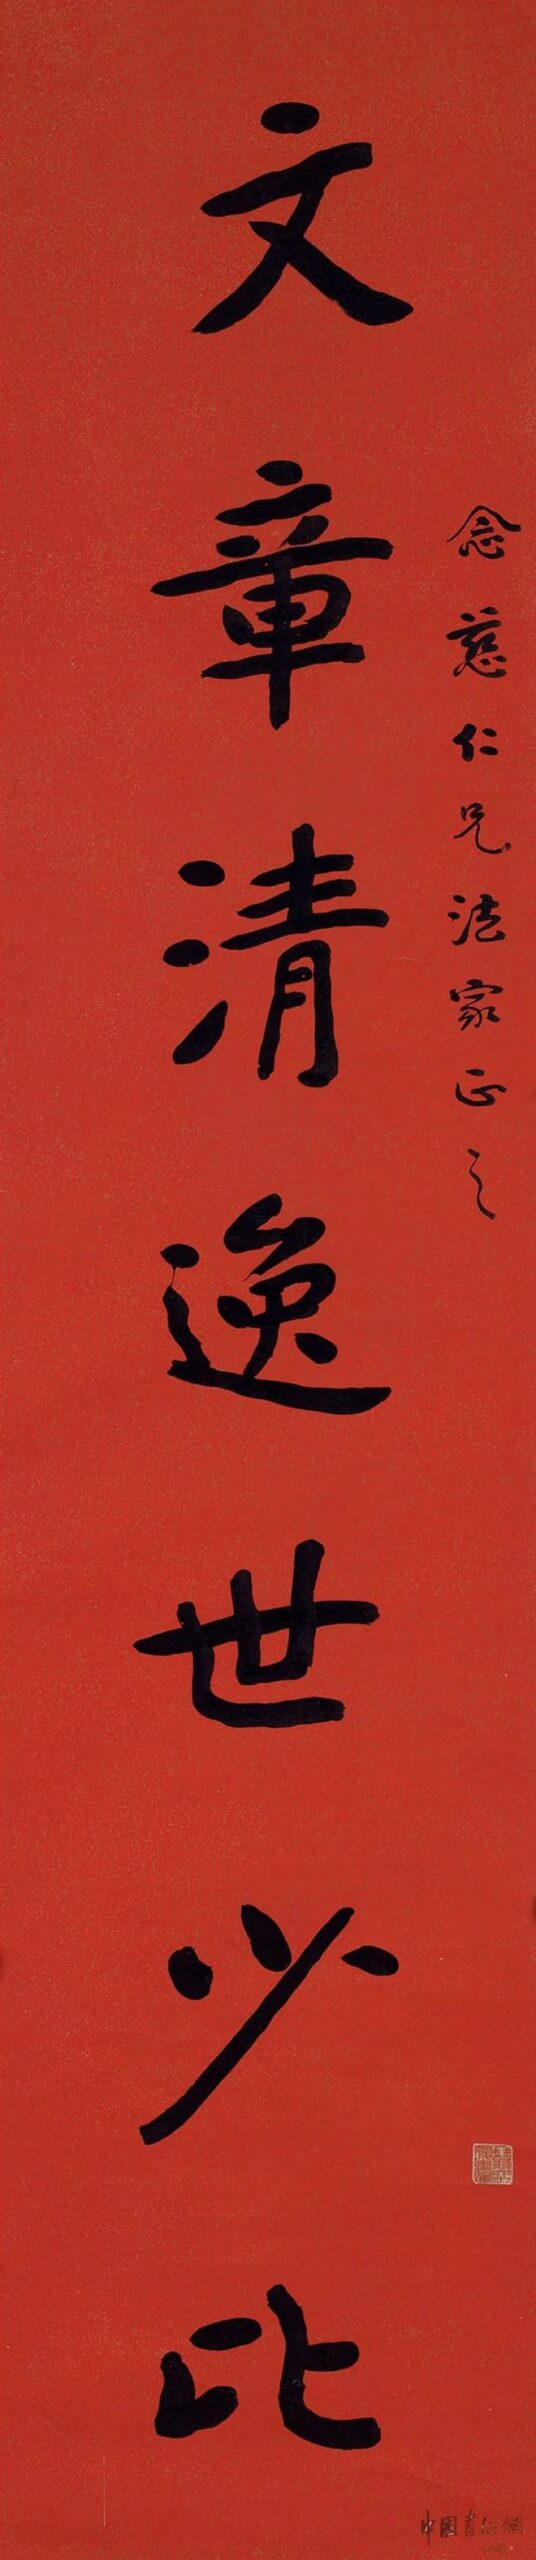 念慈仁兄法家正之
文章清逸世少比
中國書法網